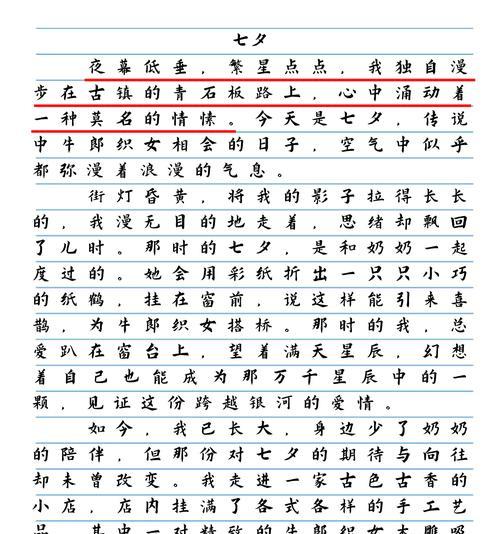 七夕
夜幕低垂，繁星点点，我独自漫
步在古镇的青石板路上，心中涌动着
一种莫名的情愫。今天是七夕，传说
中牛郎织女相会的日子，空气中似乎
都弥漫着浪漫的气息。
街灯昏黄，将我的影子拉得长长
的，我漫无目的地走着，思绪却飘回
了儿时。那时的七夕，是和奶奶一起
度过的。她会用彩纸折出一只只小巧
的纸鹤，挂在窗前，说这样能引来喜
鹊，为牛郎织女搭桥。那时的我，总
爱趴在窗台上，望着满天星辰，幻想
着自己也能成为那万千星辰中的一
颗，见证这份跨越银河的爱情。
如今，我已长大，身边少了奶奶
的陪伴，但那份对七夕的期待与向往
却未曾改变。我走进一家古色古香的
小店，店内挂满了各式各样的手工艺
品，其中一对精致的牛郎织女木雕吸